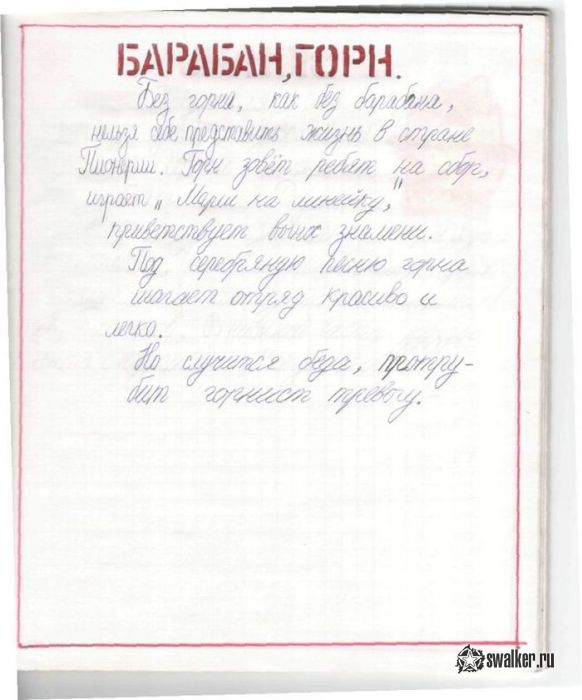 БАРАБАН, ГОРН.
Без горна, как без барабана,
нельзя себе представить жизнь в стране
Пионерии. Горн зовёт ребят на сбор,
играет „Марш на линейку,"
приветствует вынос знамени.
Под серебряную песню горна
шагает отряд красиво и
легко.
Но случится беда, протру-
бит горнист тревогу.
swalker.ru